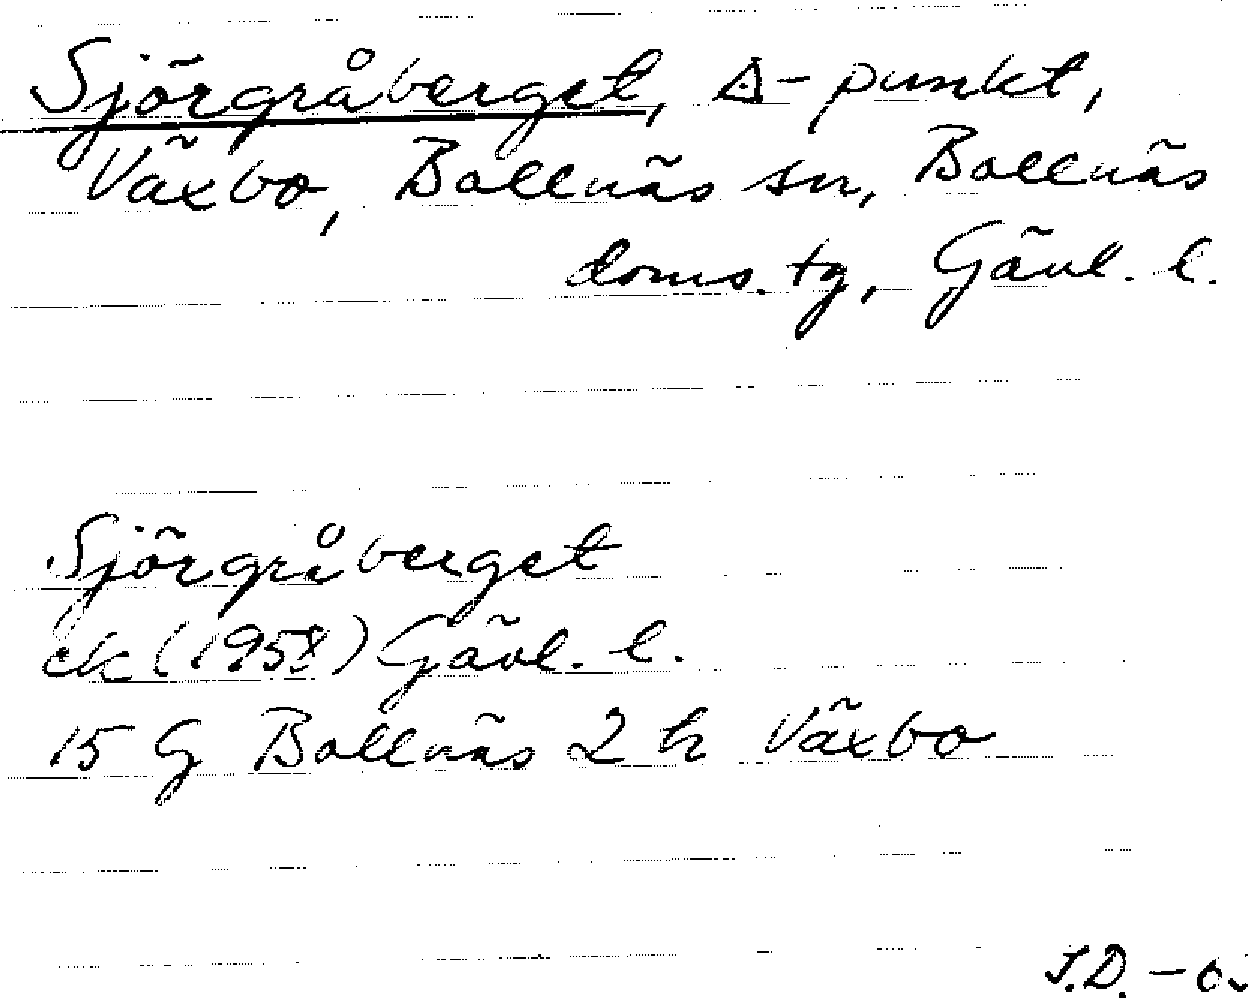 Sjörgråberget, △-punkt,
Växbo, Bollnäs sn, Bollnäs
doms. tg, Gävl. l.
Sjörgråberget
ek (1958) Gävl. l.
15 G Bollnäs 2 h Växbo
J.D. -